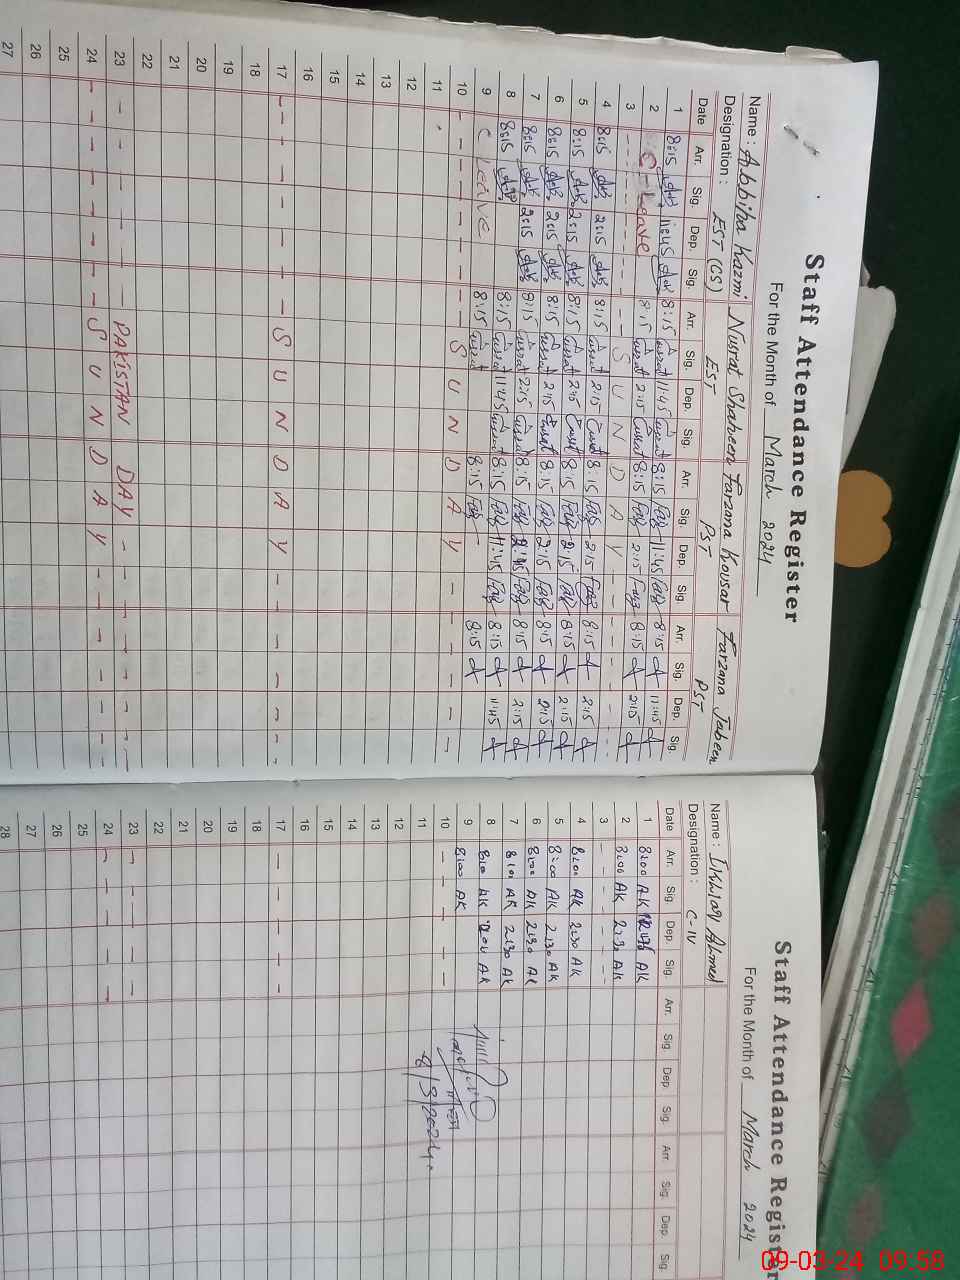 Staff Attendance Register
For the Month of March 2024
Name : Abbiba Kazmi Nusrat Shaheen Farzana Kousar Farzana Jabeen
Designation : EST (GS) EST PST PST
Date Arr. Sig. Dep. Sig. Arr. Sig. Dep. Sig. Arr. Sig. Dep. Sig. Arr. Sig. Dep. Sig.
1 8:15 11:45 8:15 11:45 8:15 11:45 8:15 11:45
2 C-Leave 8:15 2:15 8:15 2:15 8:15 2:15
3 - - - - - - S U N D A Y - - - - -
4 8:15 2:15 8:15 2:15 8:15 2:15 8:15 2:15
5 8:15 2:15 8:15 2:15 8:15 2:15 8:15 2:15
6 8:15 2:15 8:15 2:15 8:15 2:15 8:15 2:15
7 8:15 2:15 8:15 2:15 8:15 2:15 8:15 2:15
8 8:15 8:15 11:45 8:15 11:45 8:15 11:45
9 C Leave 8:15 8:15 8:15
10 - - - - - - S U N D A Y - - - - -
11
12
13
14
15
16
17 - - - - - - S U N D A Y - - - - -
18
19
20
21
22
23 - - - - - PAKISTAN DAY - - - - -
24 - - - - - - S U N D A Y - - - - -
25
26
27
Staff Attendance Register
For the Month of March 2024
Name : Ikhlaq Ahmed
Designation : C-IV
Date Arr. Sig. Dep. Sig. Arr. Sig. Dep. Sig. Arr. Sig. Dep. Sig.
1 8:00 AK AK
2 8:00 AK 2:30 AK
3 - - - -
4 8:00 AK 2:30 AK
5 8:00 AK 2:30 AK
6 8:00 AK 2:30 AK
7 8:00 AK 2:30 AK
8 8:00 AK 12:00 AK
9 8:00 AK
10 - - - -
11
12
13
14
15
16
17 - - - -
18
19
20
21
22
23 - - - -
24 - - - -
25
26
27
28
8/3/2024
09-03-24 09:58